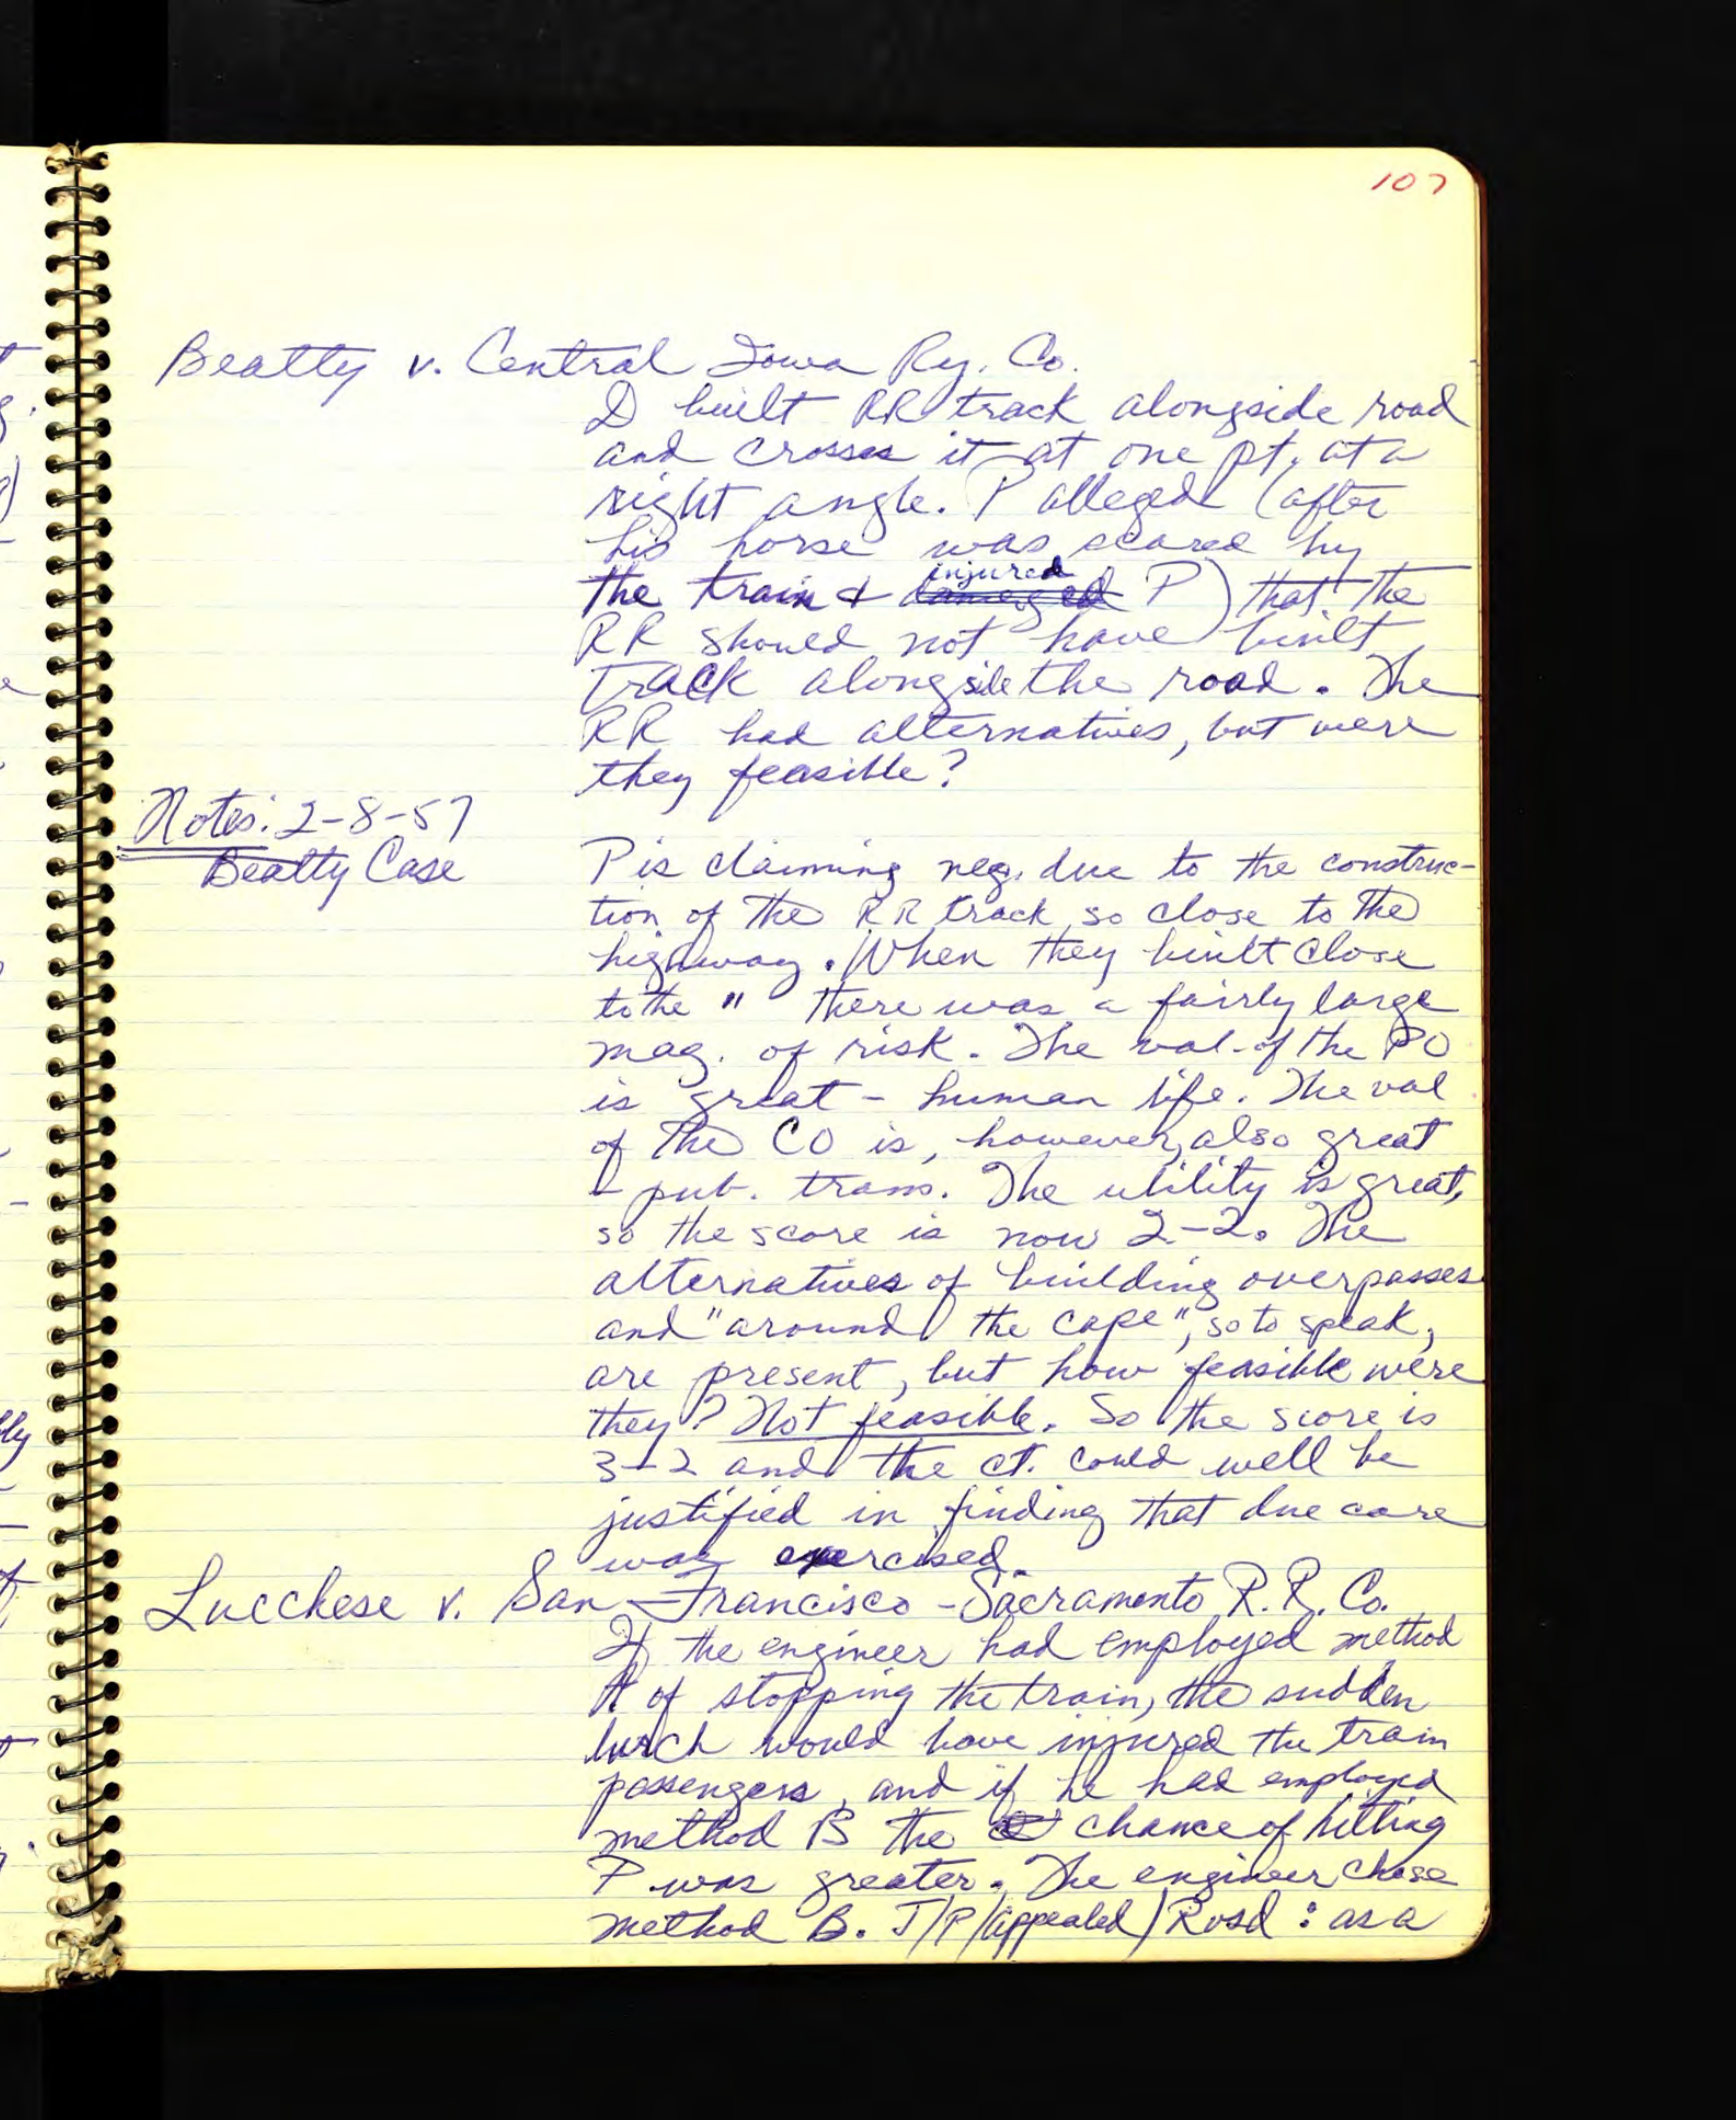 107
Beatty v. Central Iowa Ry. Co.
D built RR track alongside road
and crosses it at one pt. at a
right angle. P alleged (after
his horse was scared by
the train & damaged injured P) that the
RR should not have built
track alongside the road. The
RR had alternatives, but were
they feasible?
Notes: 2-8-57
Beatty Case
P is claiming neg. due to the construc-
tion of the RR track so close to the
highway. When they built close
to the " there was a fairly large
mag. of risk. The val. of the PO
is great - human life. The val
of the CO is, however, also great
- pub. trans. The utility is great,
so the score is now 2-2. The
alternatives of building overpasses
and "around the cape", so to speak,
are present, but how feasible were
they? Not feasible. So the score is
3-2 and the ct. could well be
justified in finding that due care
was exercised.
Lucchese v. San Francisco-Sacramento R.R. Co.
If the engineer had employed method
A of stopping the train, the sudden
lurch would have injured the train
passengers, and if he had employed
method B the chance of hitting
P was greater. The engineer chose
method B. J/P/(appealed) Rvsd : as a